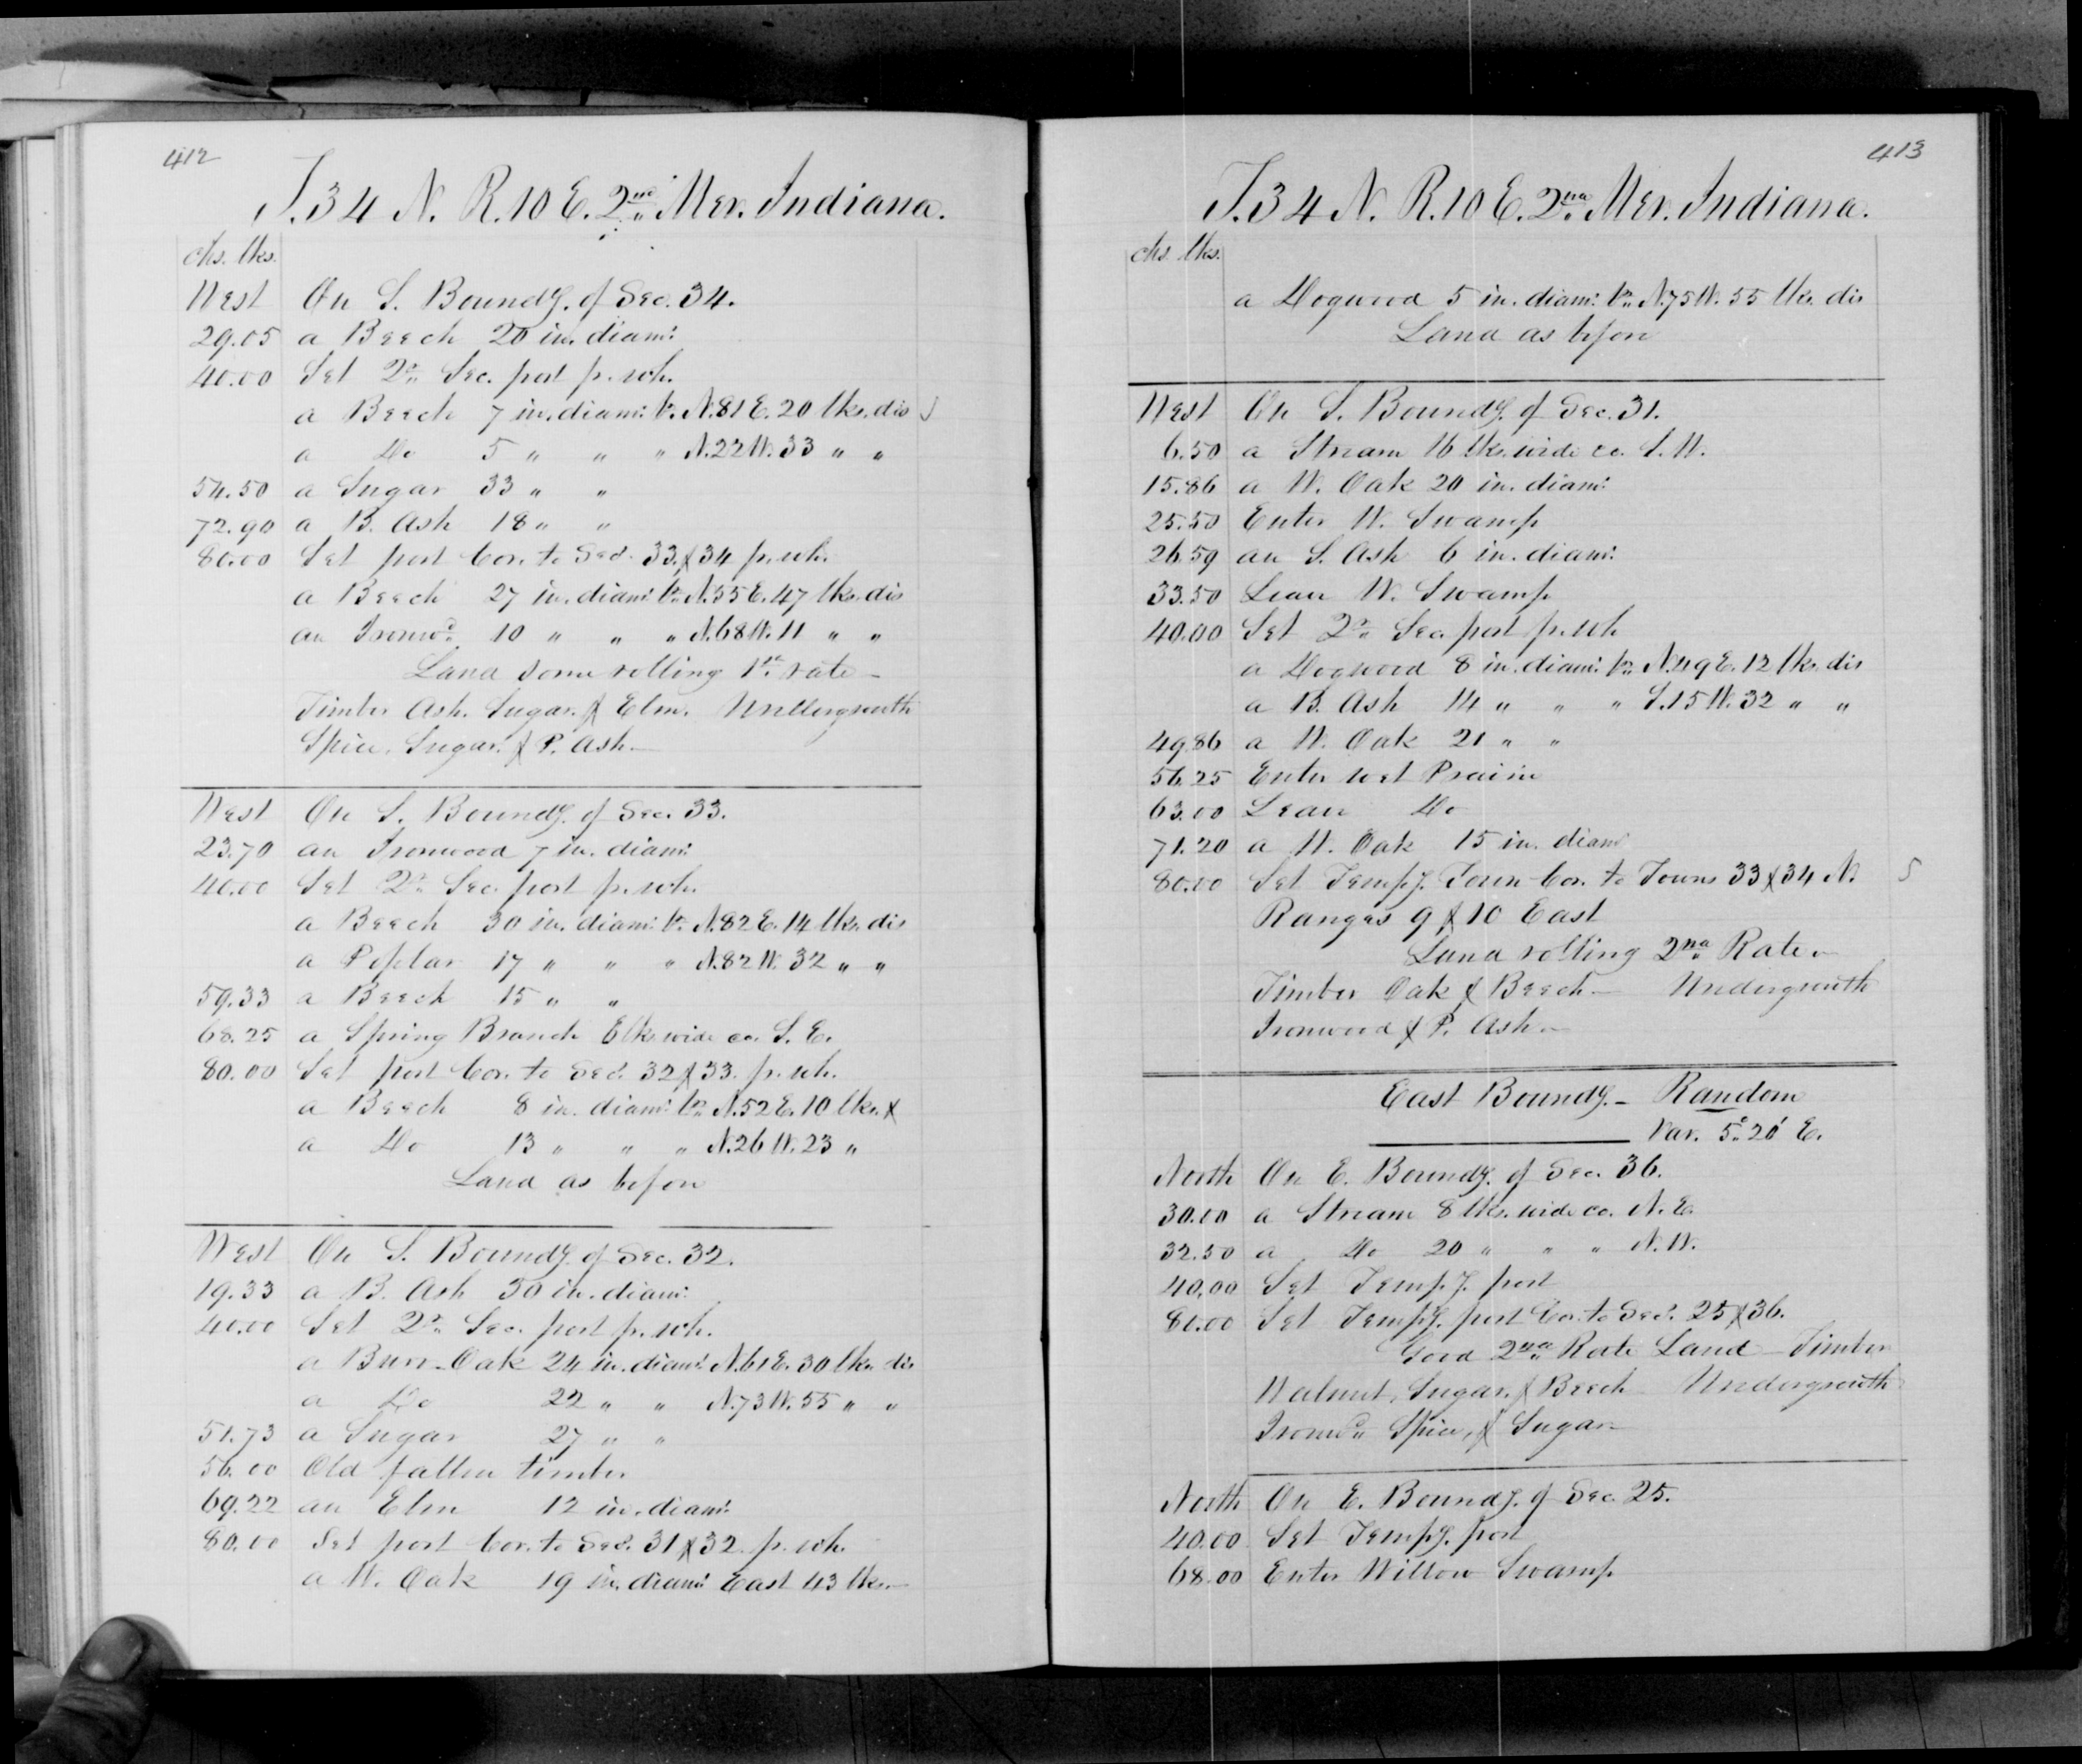 412
T.34 N. R.10 E. 2nd Mer. Indiana.
chs. lks.
West On S. Boundy. of Sec. 34.
29.05 a Beech 20 in. diam:
40.00 Set 2r Sec. post p. sch.
a Beech 7 in. diam: br. N.81 E. 20 lks. dis
a Do 5 " " " N.22 W. 33 " "
54.50 a Sugar 33 " "
72.90 a B. Ash 18 " "
80.00 Set post Cor. to Secs. 33 & 34 p. sch.
a Beech 27 in. diam: br. N.55 E. 47 lks. dis
an Ironwd. 10 " " " N.68 W. 11 " "
Land some rolling 1st rate
Timber Ash. Sugar. & Elm. Undergrowth
Spice, Sugar. & P. Ash.
West On S. Boundy. of Sec. 33.
23.70 an Ironwood 7 in. diam:
40.00 Set 2r Sec. post p. sch.
a Beech 30 in. diam: br. N.82 E. 14 lks. dis
a Poplar 17 " " " N.82 W. 32 " "
59.33 a Beech 15 " "
68.25 a Spring Branch 6 lks. wide co. S. E.
80.00 Set post Cor. to Secs. 32 & 33. p. sch.
a Beech 8 in. diam: br. N.52 E. 10 lks. &
a Do 13 " " " N.26 W. 23 "
Land as before
West On S. Boundy. of Sec. 32.
19.33 a B. Ash 30 in. diam:
40.00 Set 2r Sec. post p. sch.
a Burr-Oak 24 in. diam: N.61 E. 30 lks. dis
a Do 22 " " N.73 W. 55 " "
51.73 a Sugar 27 " "
56.00 Old fallen timber
69.22 an Elm 12 in. diam:
80.00 Set post Cor. to Secs. 31 & 32. p. sch.
a W. Oak 19 in. diam: East 43 lks.
413
T.34 N. R.10 E. 2nd Mer. Indiana.
chs. lks.
a Dogwood 5 in. diam: br. N.75 W. 55 lks. dis
Land as before
West On S. Boundy. of Sec. 31.
6.50 a Stream 16 lks. wide co. S. W.
15.86 a W. Oak 20 in. diam:
25.50 Enter W. Swamp
26.59 an S. Ash 6 in. diam:
33.50 Leave W. Swamp
40.00 Set 2r Sec. post p. sch
a Dogwood 8 in. diam: br. N.49 E. 12 lks. dis
a B. Ash 14 " " " S.15 W. 32 " "
49.86 a W. Oak 21 " "
56.25 Enter wet Prairie
63.00 Leave Do
71.20 a W. Oak 15 in. diam
80.00 Set Tempy. Town Cor. to Towns 33 & 34 N.
Ranges 9 & 10 East
Land rolling 2nd Rate
Timber Oak & Beech Undergrowth
Ironwood & P. Ash
East Boundy. Random
Var. 5° 20' E.
North On E. Boundy. of Sec. 36.
30.00 a Stream 8 lks. wide co. N. E.
32.50 a Do 20 " " " N. W.
40.00 Set Tempy. post
80.00 Set Tempy. post Cor. to Secs. 25 & 36.
Good 2nd Rate Land Timber
Walnut, Sugar. & Beech Undergrowth
Ironwd. Spice, & Sugar
North On E. Boundy. of Sec. 25.
40.00 Set Tempy. post
68.00 Enter Willow Swamp